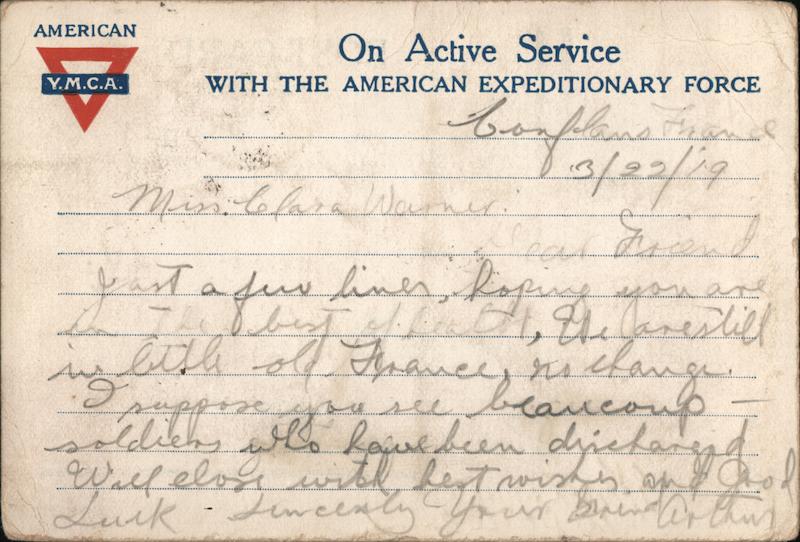 AMERICAN
Y.M.C.A.
On Active Service
WITH THE AMERICAN EXPEDITIONARY FORCE
Conflans France
3/22/19
Miss. Clara Warner.
Dear Friend
Just a few lines, hoping you are
in the best of health, We are still
in little old France, no change.
I suppose you see beaucoup –
soldiers who have been discharged
Will close with best wishes and Good
Luck Sincerely Your Friend Arthur